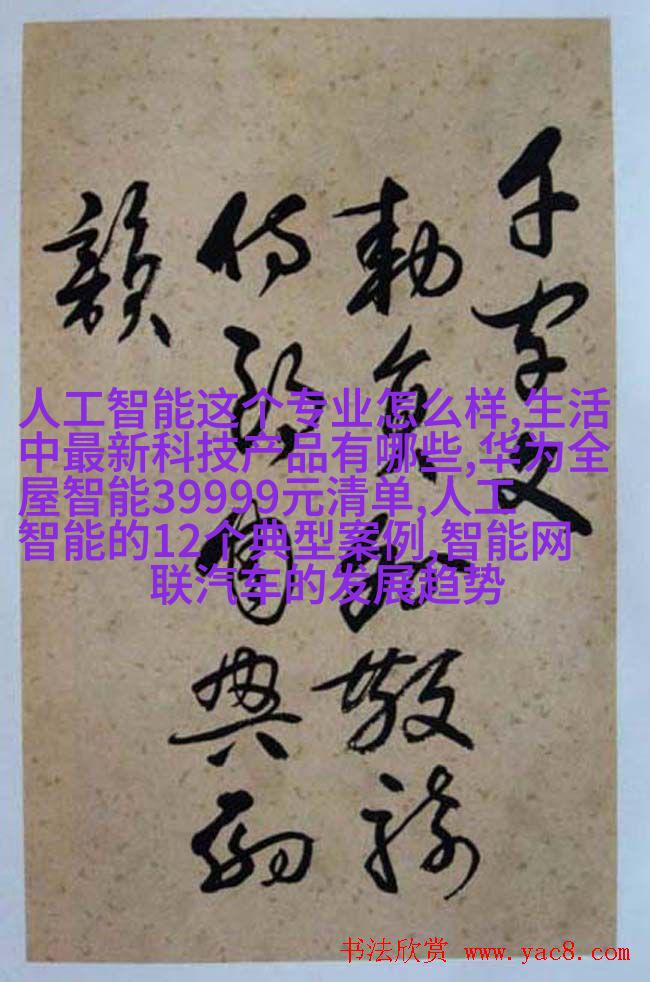 千字文
勅員外散騎
侍郎周興嗣
韻
人工智能这个专业怎么样,生活
中最新科技产品有哪些,华为全
屋智能39999元清单,人工
智能的12个典型案例,智能网
联汽车的发展趋势
书法欣赏 www.yac8.com